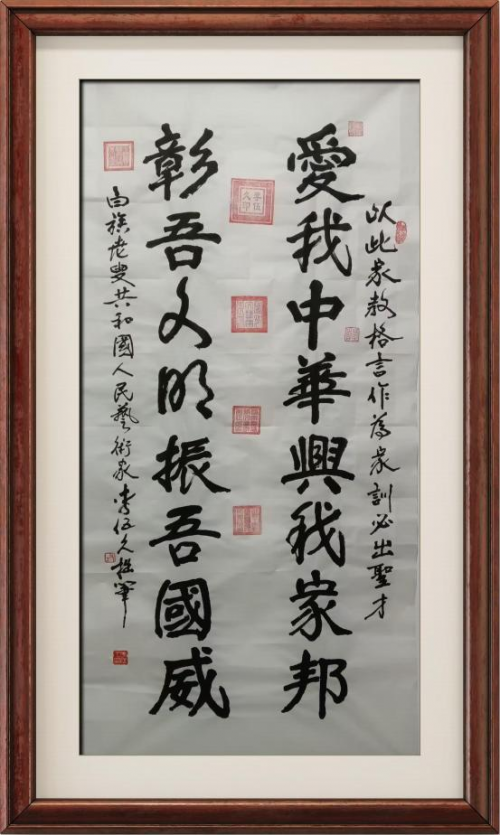 以此家教格言作為家訓必出聖才
愛我中華興我家邦
彰吾文明振吾國威
白族老叟共和國人民藝術家李伍久拙筆